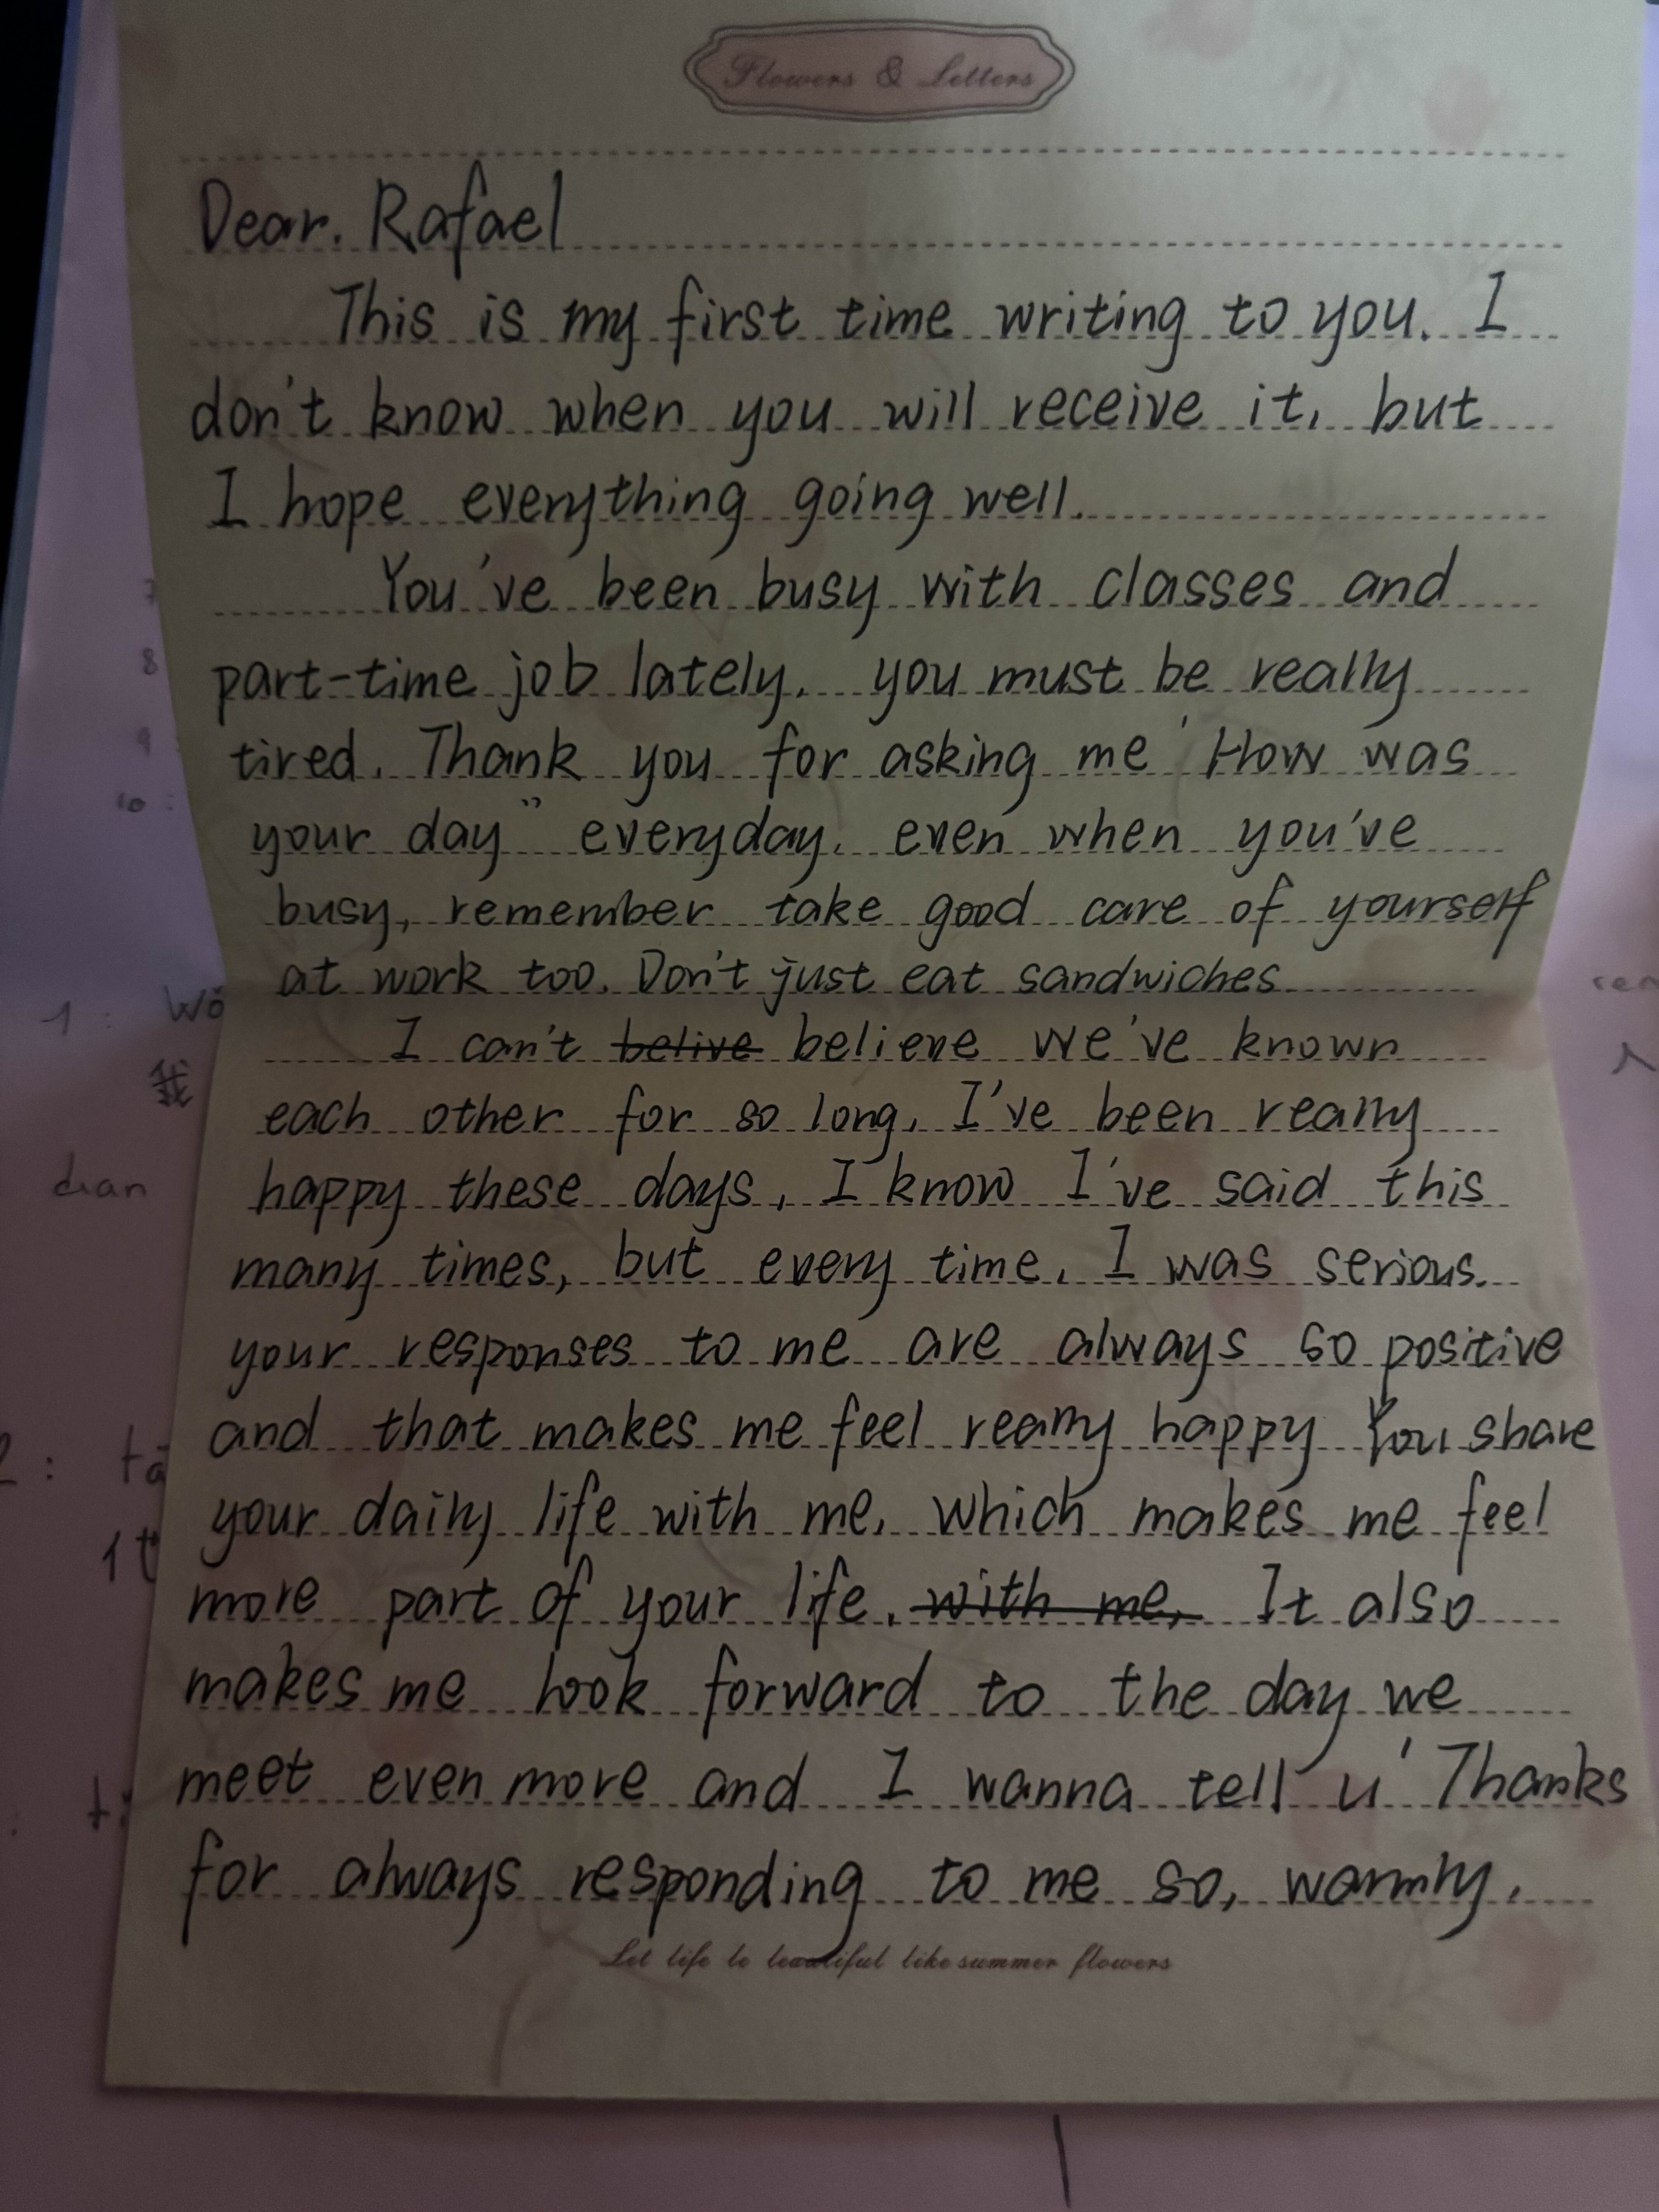 Flowers & Letters
Dear. Rafael
This is my first time writing to you. I
don't know when you will receive it, but
I hope everything going well.
You've been busy with classes and
part-time job lately. you must be really
tired. Thank you for asking me ' How was
your day" everyday. even when you've
busy, remember take good care of yourself
at work too. Don't just eat sandwiches
I can't belive believe we've known
each other for so long, I've been really
happy these days, I know I've said this
many times, but every time, I was serious.
your responses to me are always so positive
and that makes me feel really happy You share
your daily life with me, which makes me feel
more part of your life. with me, It also
makes me look forward to the day we
meet even more and I wanna tell u ' Thanks
for always responding to me so, warmly.
Let life be beautiful like summer flowers
7
8
9
10 :
1 : Wǒ
我
dian
2 : tā
1
ren